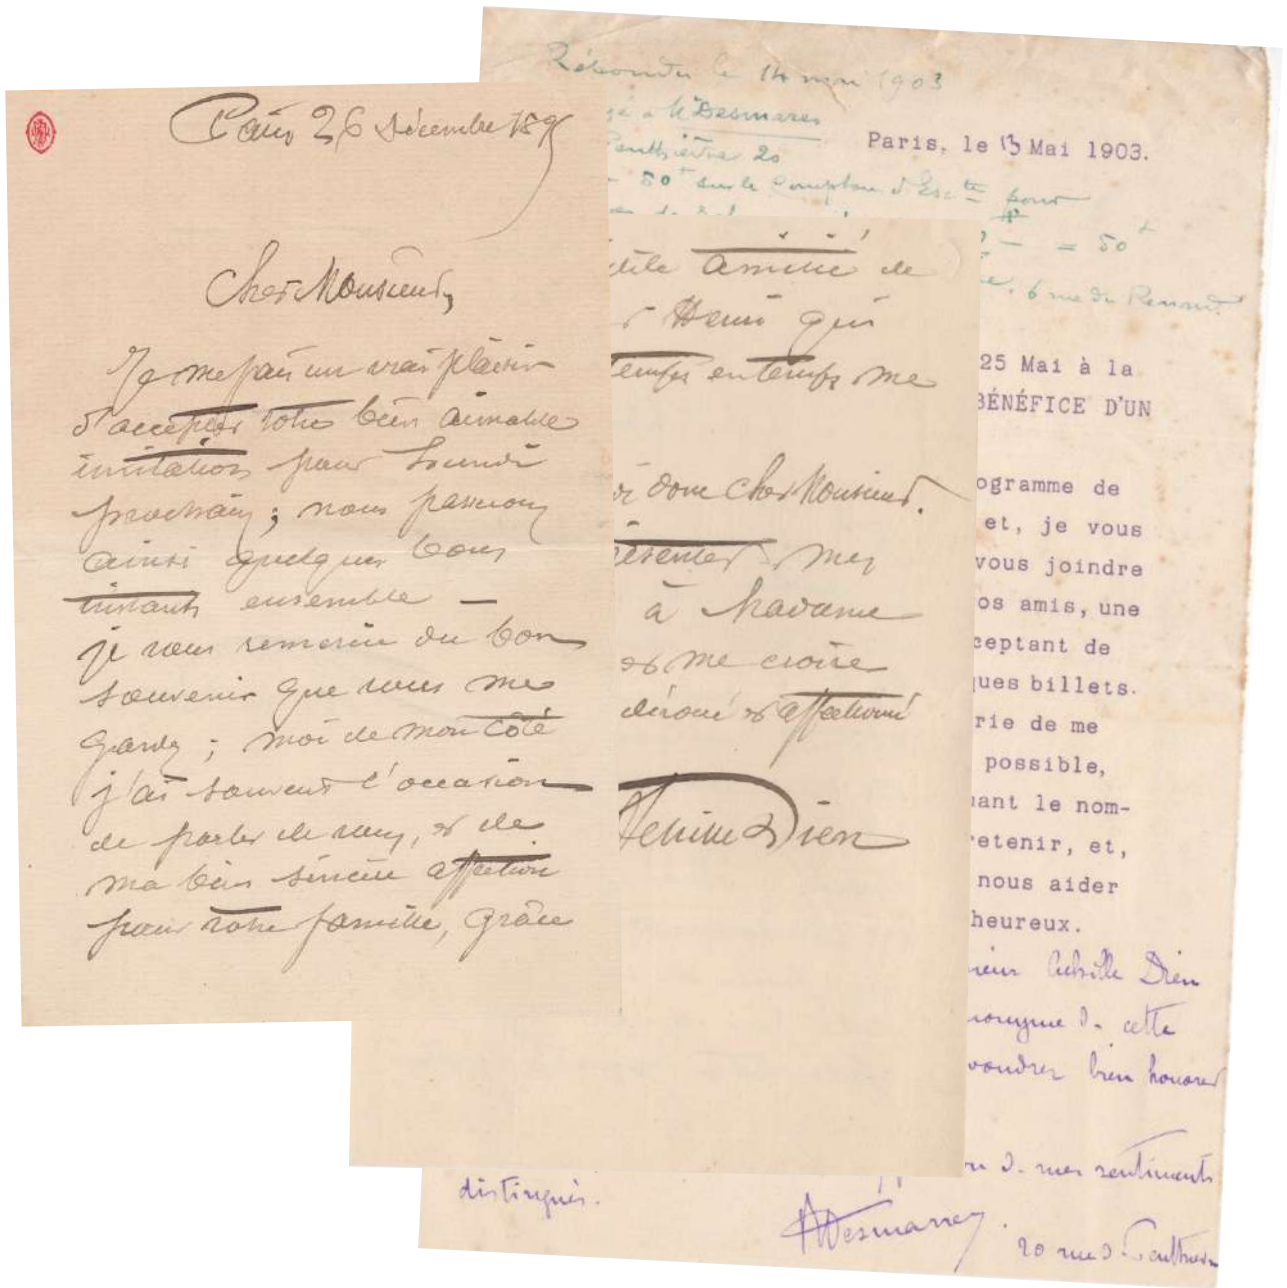 Paris 26 Décembre 189
Cher Monsieur,
Je me fais un vrai plaisir
d'accepter votre bien aimable
invitation pour Lundi
prochain ; nous passerons
ainsi quelques bons
instants ensemble —
je vous remercie du bon
souvenir que vous me
gardez ; moi de mon côté
j'ai souvent l'occasion
de parler de vous, et de
ma bien sincère affection
pour votre famille, grâce
amitié de
Henri qui
temps en temps me
donc cher Monsieur.
résenter mes
à Madame
et me croire
dévoué et affectionné
Dien
Répondu le 14 mai 1903
à Mr Desmares
Penthièvre 20
50 sur le Comptoir d'Escte pour
= 50
6 rue du Renard
Paris, le 13 Mai 1903.
25 Mai à la
BÉNÉFICE D'UN
ogramme de
et, je vous
vous joindre
os amis, une
ceptant de
ques billets.
rie de me
possible,
nant le nom-
retenir, et,
nous aider
heureux.
sieur Achille Dien
nonyme de cette
voudrez bien honorer
de mes sentiments
distingués.
Desmarres
20 rue de Penthièvre